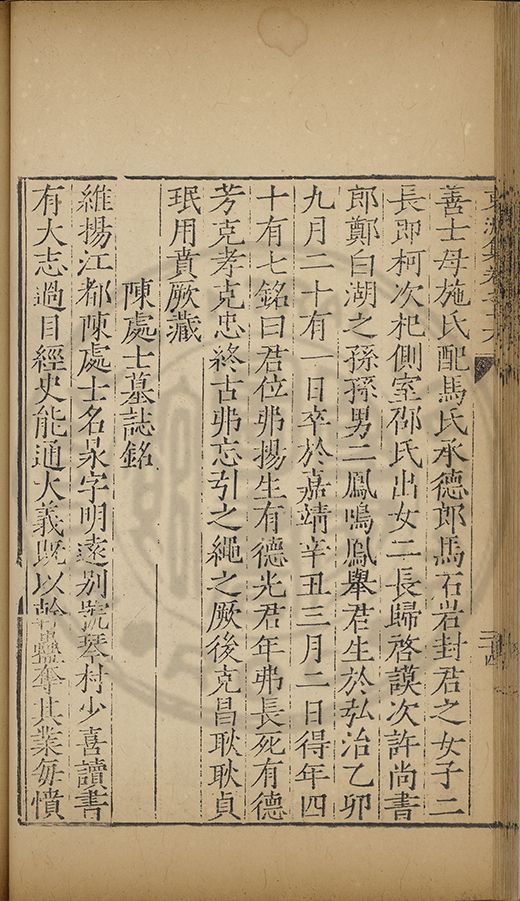 善士母施氏配馬氏承德郎馬石岩封君之女子二
長即柯次杞側室邵氏出女二長歸啓謨次許尚書
郎鄭白湖之孫孫男二鳳鳴鳳舉君生於弘治乙卯
九月二十有一日卒於嘉靖辛丑三月二日得年四
十有七銘曰君位弗揚生有德光君年弗長死有德
芳克孝克忠終古弗忘引之繩之厥後克昌耿耿貞
珉用賁厥藏
陳處士墓誌銘
維揚江都陳處士名泉字明遠别號琴村少喜讀書
有大志過目經史能通大義既以幹蠱奪其業每憤